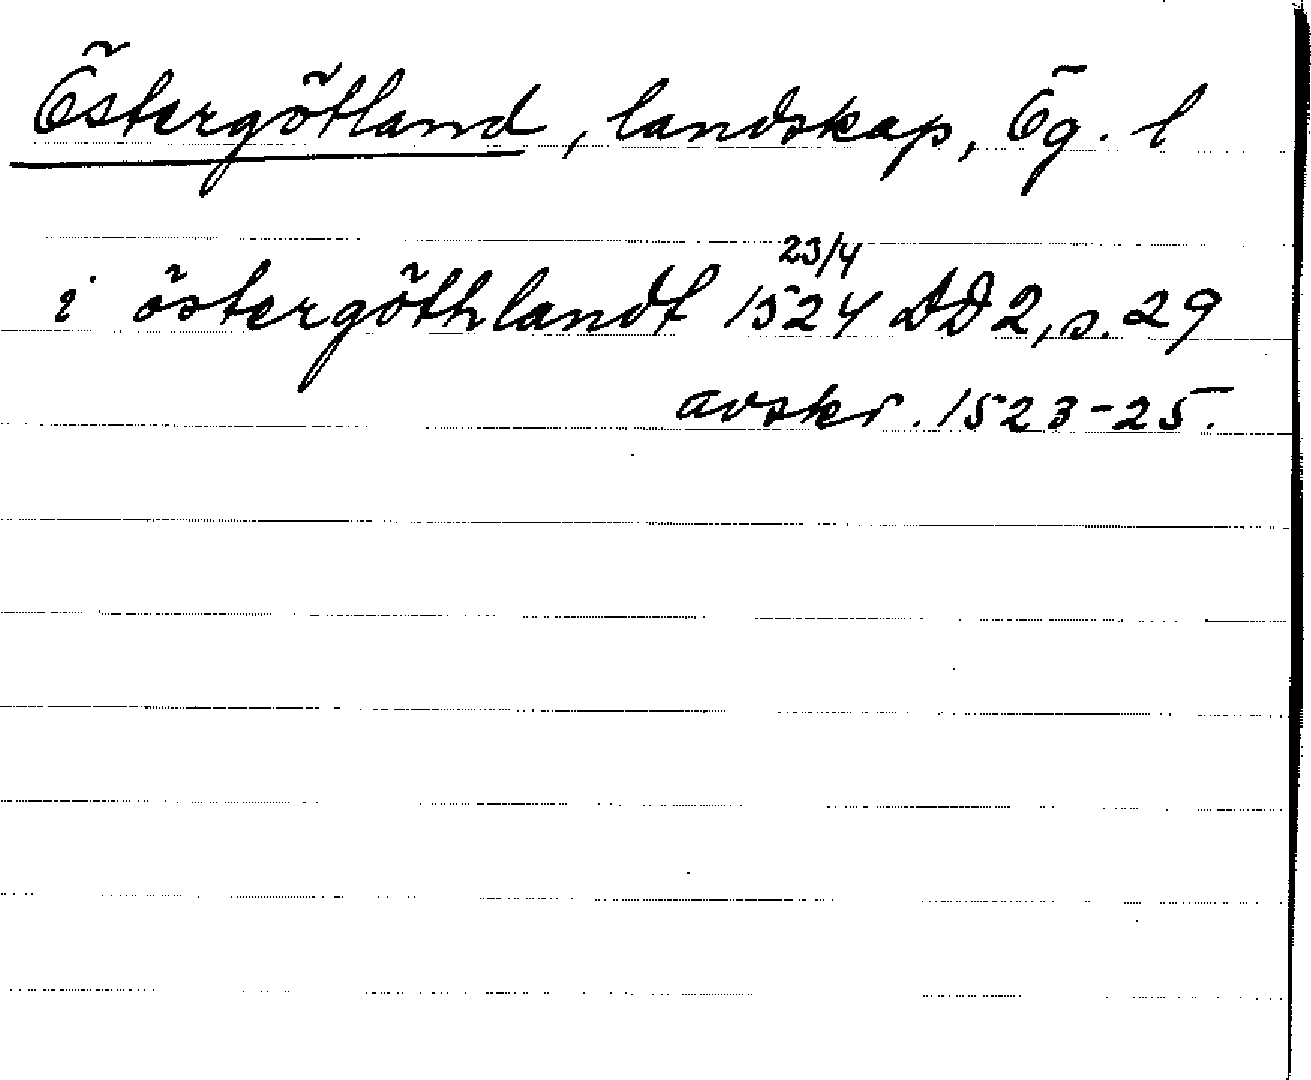 Östergötland, landskap, Ög. l
i östergöthlandt 23/4 1524 DD2, s. 29
avskr. 1523-25.